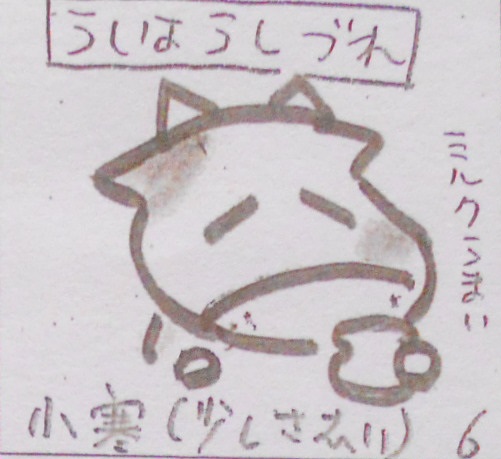 うしはうしづれ
ミルクうまい
小寒(少しさむい) 6